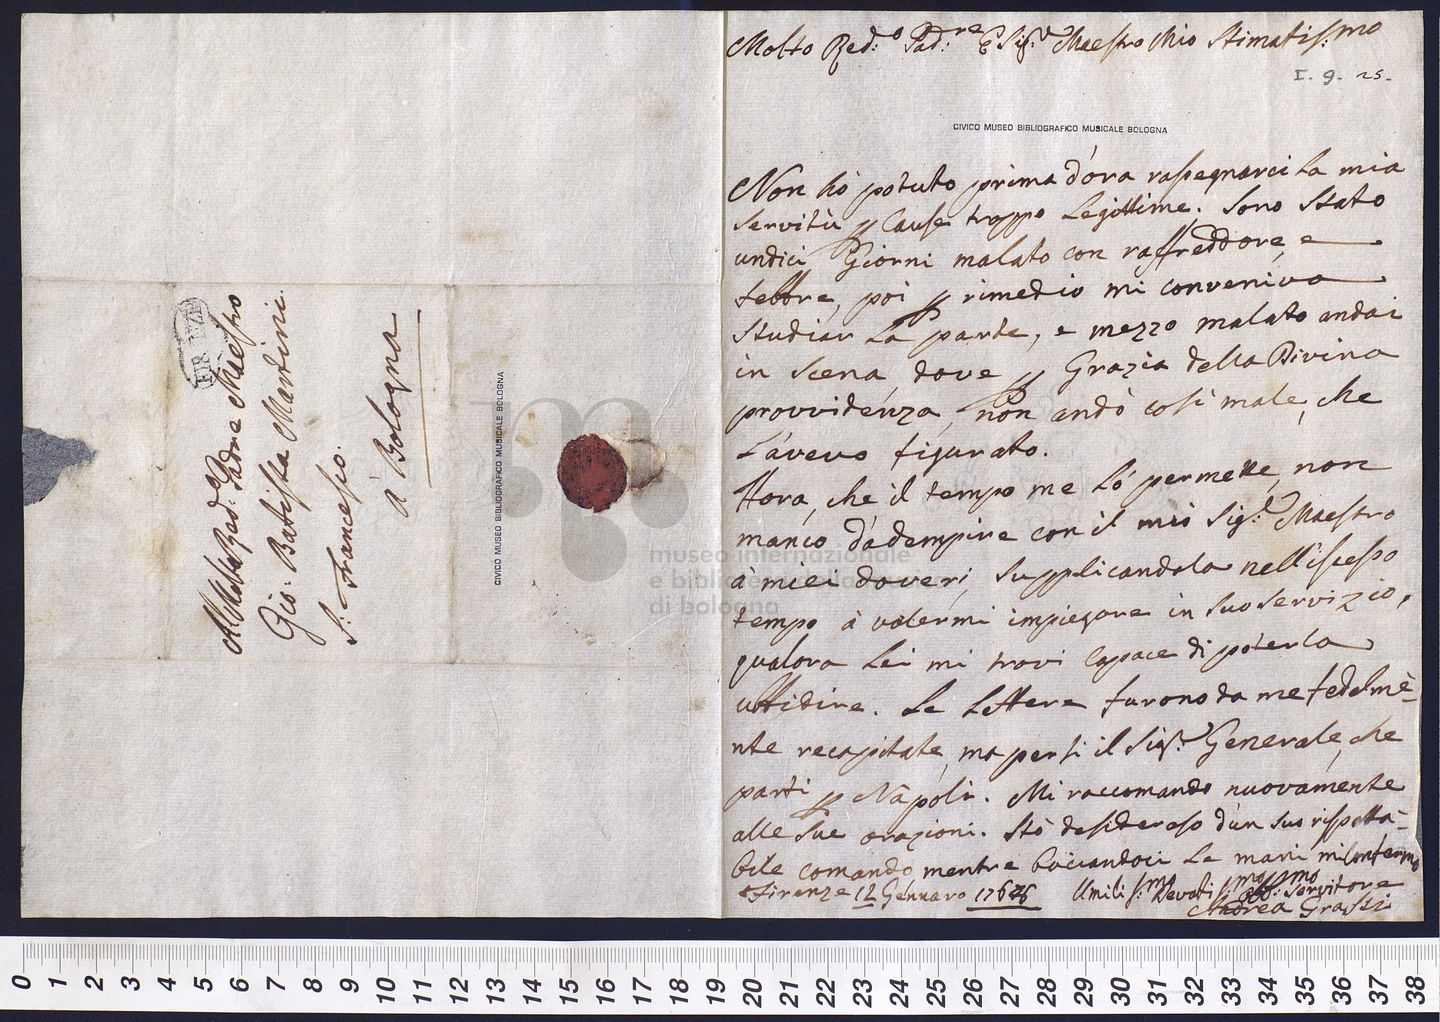 Molto Red:o Pad:re E Sig:r Maestro Mio Stimatis:mo
I. 9. 25.
CIVICO MUSEO BIBLIOGRAFICO MUSICALE BOLOGNA
Non hò potuto prima d'ora rassegnarci la mia
servitù p Cause troppo legittime. Sono stato
undici Giorni malato con raffreddore, e
febbre, poi p rimedio mi conveniva
studiar la parte, e mezzo malato andai
in scena, dove p Grazia della Divina
provvidenza, non andò così male, che
l'avevo figurato.
Hora, che il tempo me lò permette, non
manco d'adempire con il mio Sig:r Maestro
à miei doveri, supplicandola nell'istesso
tempo à volermi impiegare in suo servizio,
qualora lei mi trovi capace di poterla
ubbidire. Le lettere furono da me fedelmē-
nte recapitate, ma persi il Sig:r Generale, che
partì p Nàpoli. Mi raccomando nuovamente
alle sue orazioni. Stò desideroso d'un suo rispettà-
bile comando mentre baciandoci le mani mi confermo
Firenze 12 Gennaro
Umilis:mo Devotis:mo Obb:mo Servitore
Andrea Grassi
Al Molto Red:o Padre Maestro
Gio: Batista Martini.
S: Francesco.
à Bologna
FIRENZE
CIVICO MUSEO BIBLIOGRAFICO MUSICALE BOLOGNA
museo internazionale
e biblioteca della
di bologna
0 1 2 3 4 5 6 7 8 9 10 11 12 13 14 15 16 17 18 19 20 21 22 23 24 25 26 27 28 29 30 31 32 33 34 35 36 37 38